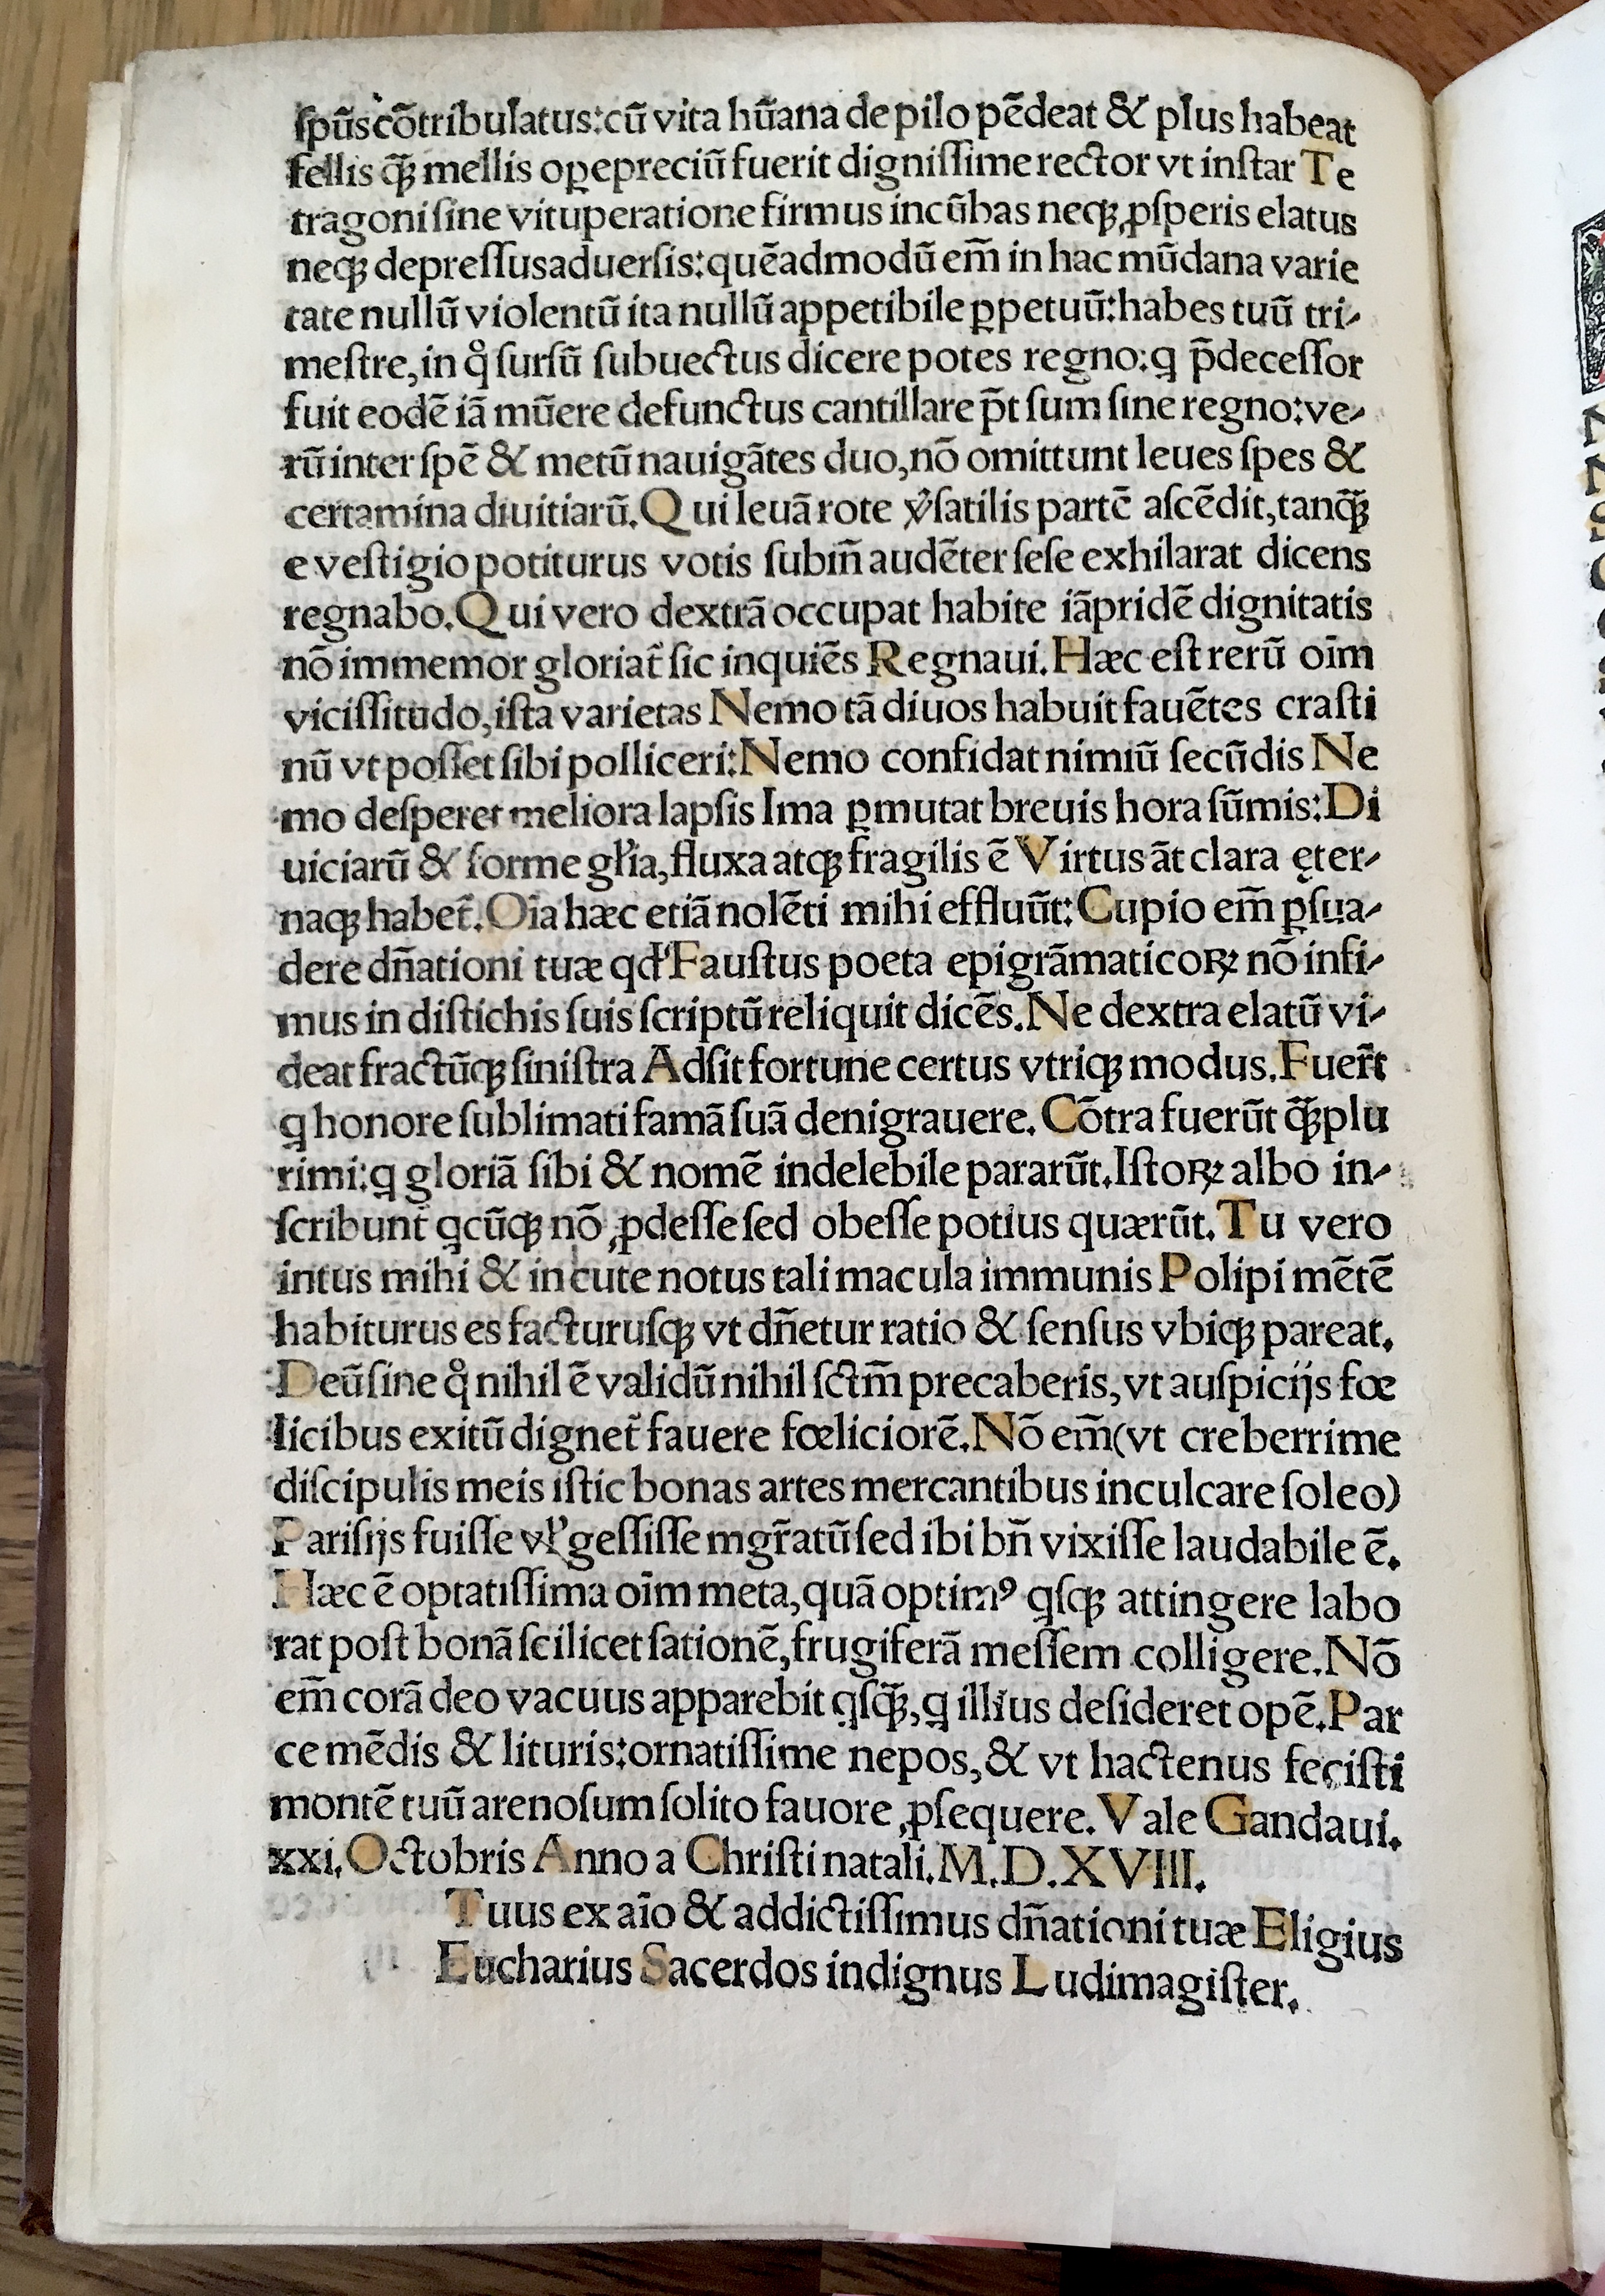 ſpūs cōtribulatus:cū vita hūana de pilo pēdeat & plus habeat
fellis q̃ꝫ mellis oꝑepreciū fuerit digniſſime rector vt inſtar Te
tragoni ſine vituperatione firmus incūbas neqꝫ ꝓſperis elatus
neqꝫ depreſſus aduerſis:quēadmodū em̄ in hac mūdana varie
tate nullū violentū ita nullū appetibile ꝑpetuū:habes tuū tri-
meſtre,in qͦ ſurſū ſubuectus dicere potes regno:q p̄deceſſor
fuit eodē iā mūere defunctus cantillare pt̄ ſum ſine regno:ve-
rū inter ſpē & metū nauigātes duo,nō omittunt leues ſpes &
certamina diuitiarū.Qui leuā rote v̓ſatilis partē aſcēdit,tanq̃ꝫ
e veſtigio potiturus votis ſubin̄ audēter ſeſe exhilarat dicens
regnabo.Qui vero dextrā occupat habite iāpridē dignitatis
nō immemor gloriat̄ ſic inquiēs Regnaui.Hæc eſt rerū oīm
viciſſitudo,iſta varietas Nemo tā diuos habuit fauētes craſti
nū vt poſſet ſibi polliceri:Nemo confidat nimiū ſecūdis Ne
mo deſperet meliora lapſis Ima ꝑmutat breuis hora ſūmis:Di
uiciarū & forme gl̓ia,fluxa atqꝫ fragilis ē Virtus āt clara ęter-
naqꝫ habet̄.Oīa hæc etiā nolēti mihi effluūt:Cupio em̄ ꝑſua-
dere dn̄ationi tuæ qd̓ Fauſtus poeta epigrāmaticoꝝ nō infi-
mus in diſtichis ſuis ſcriptū reliquit dicēs.Ne dextra elatū vi-
deat fractūqꝫ ſiniſtra Adſit fortune certus vtriqꝫ modus.Fuer̄t
q honore ſublimati famā ſuā denigrauere.Cōtra fuerūt q̃ꝫplu
rimi:q gloriā ſibi & nomē indelebile pararūt.Iſtoꝝ albo in-
ſcribunt̄ qcūqꝫ nō ꝓdeſſe ſed obeſſe potius quærūt.Tu vero
intus mihi & in cute notus tali macula immunis Polipi mētē
habiturus es facturuſqꝫ vt dn̄etur ratio & ſenſus vbiqꝫ pareat.
Deū ſine qͦ nihil ē validū nihil ſctm̄ precaberis,vt auſpicijs fœ
licibus exitū dignet̄ fauere fœliciorē.Nō em̄(vt creberrime
diſcipulis meis iſtic bonas artes mercantibus inculcare ſoleo)
Pariſijs fuiſſe vl̓ geſſiſſe mgr̄atū ſed ibi bn̄ vixiſſe laudabile ē.
Hæc ē optatiſſima oīm meta,quā optimꝰ qſqꝫ attingere labo
rat poſt bonā ſcilicet ſationē,frugiferā meſſem colligere.Nō
em̄ corā deo vacuus apparebit qſq̃ꝫ,q illius deſideret opē.Par
ce mēdis & lituris:ornatiſſime nepos,& vt hactenus feciſti
montē tuū arenoſum ſolito fauore ꝓſequere.Vale Gandaui.
xxi.Octobris Anno a Chriſti natali.M.D.XVIII.
Tuus ex aīo & addictiſſimus dn̄ationi tuæ Eligius
Eucharius Sacerdos indignus Ludimagiſter.